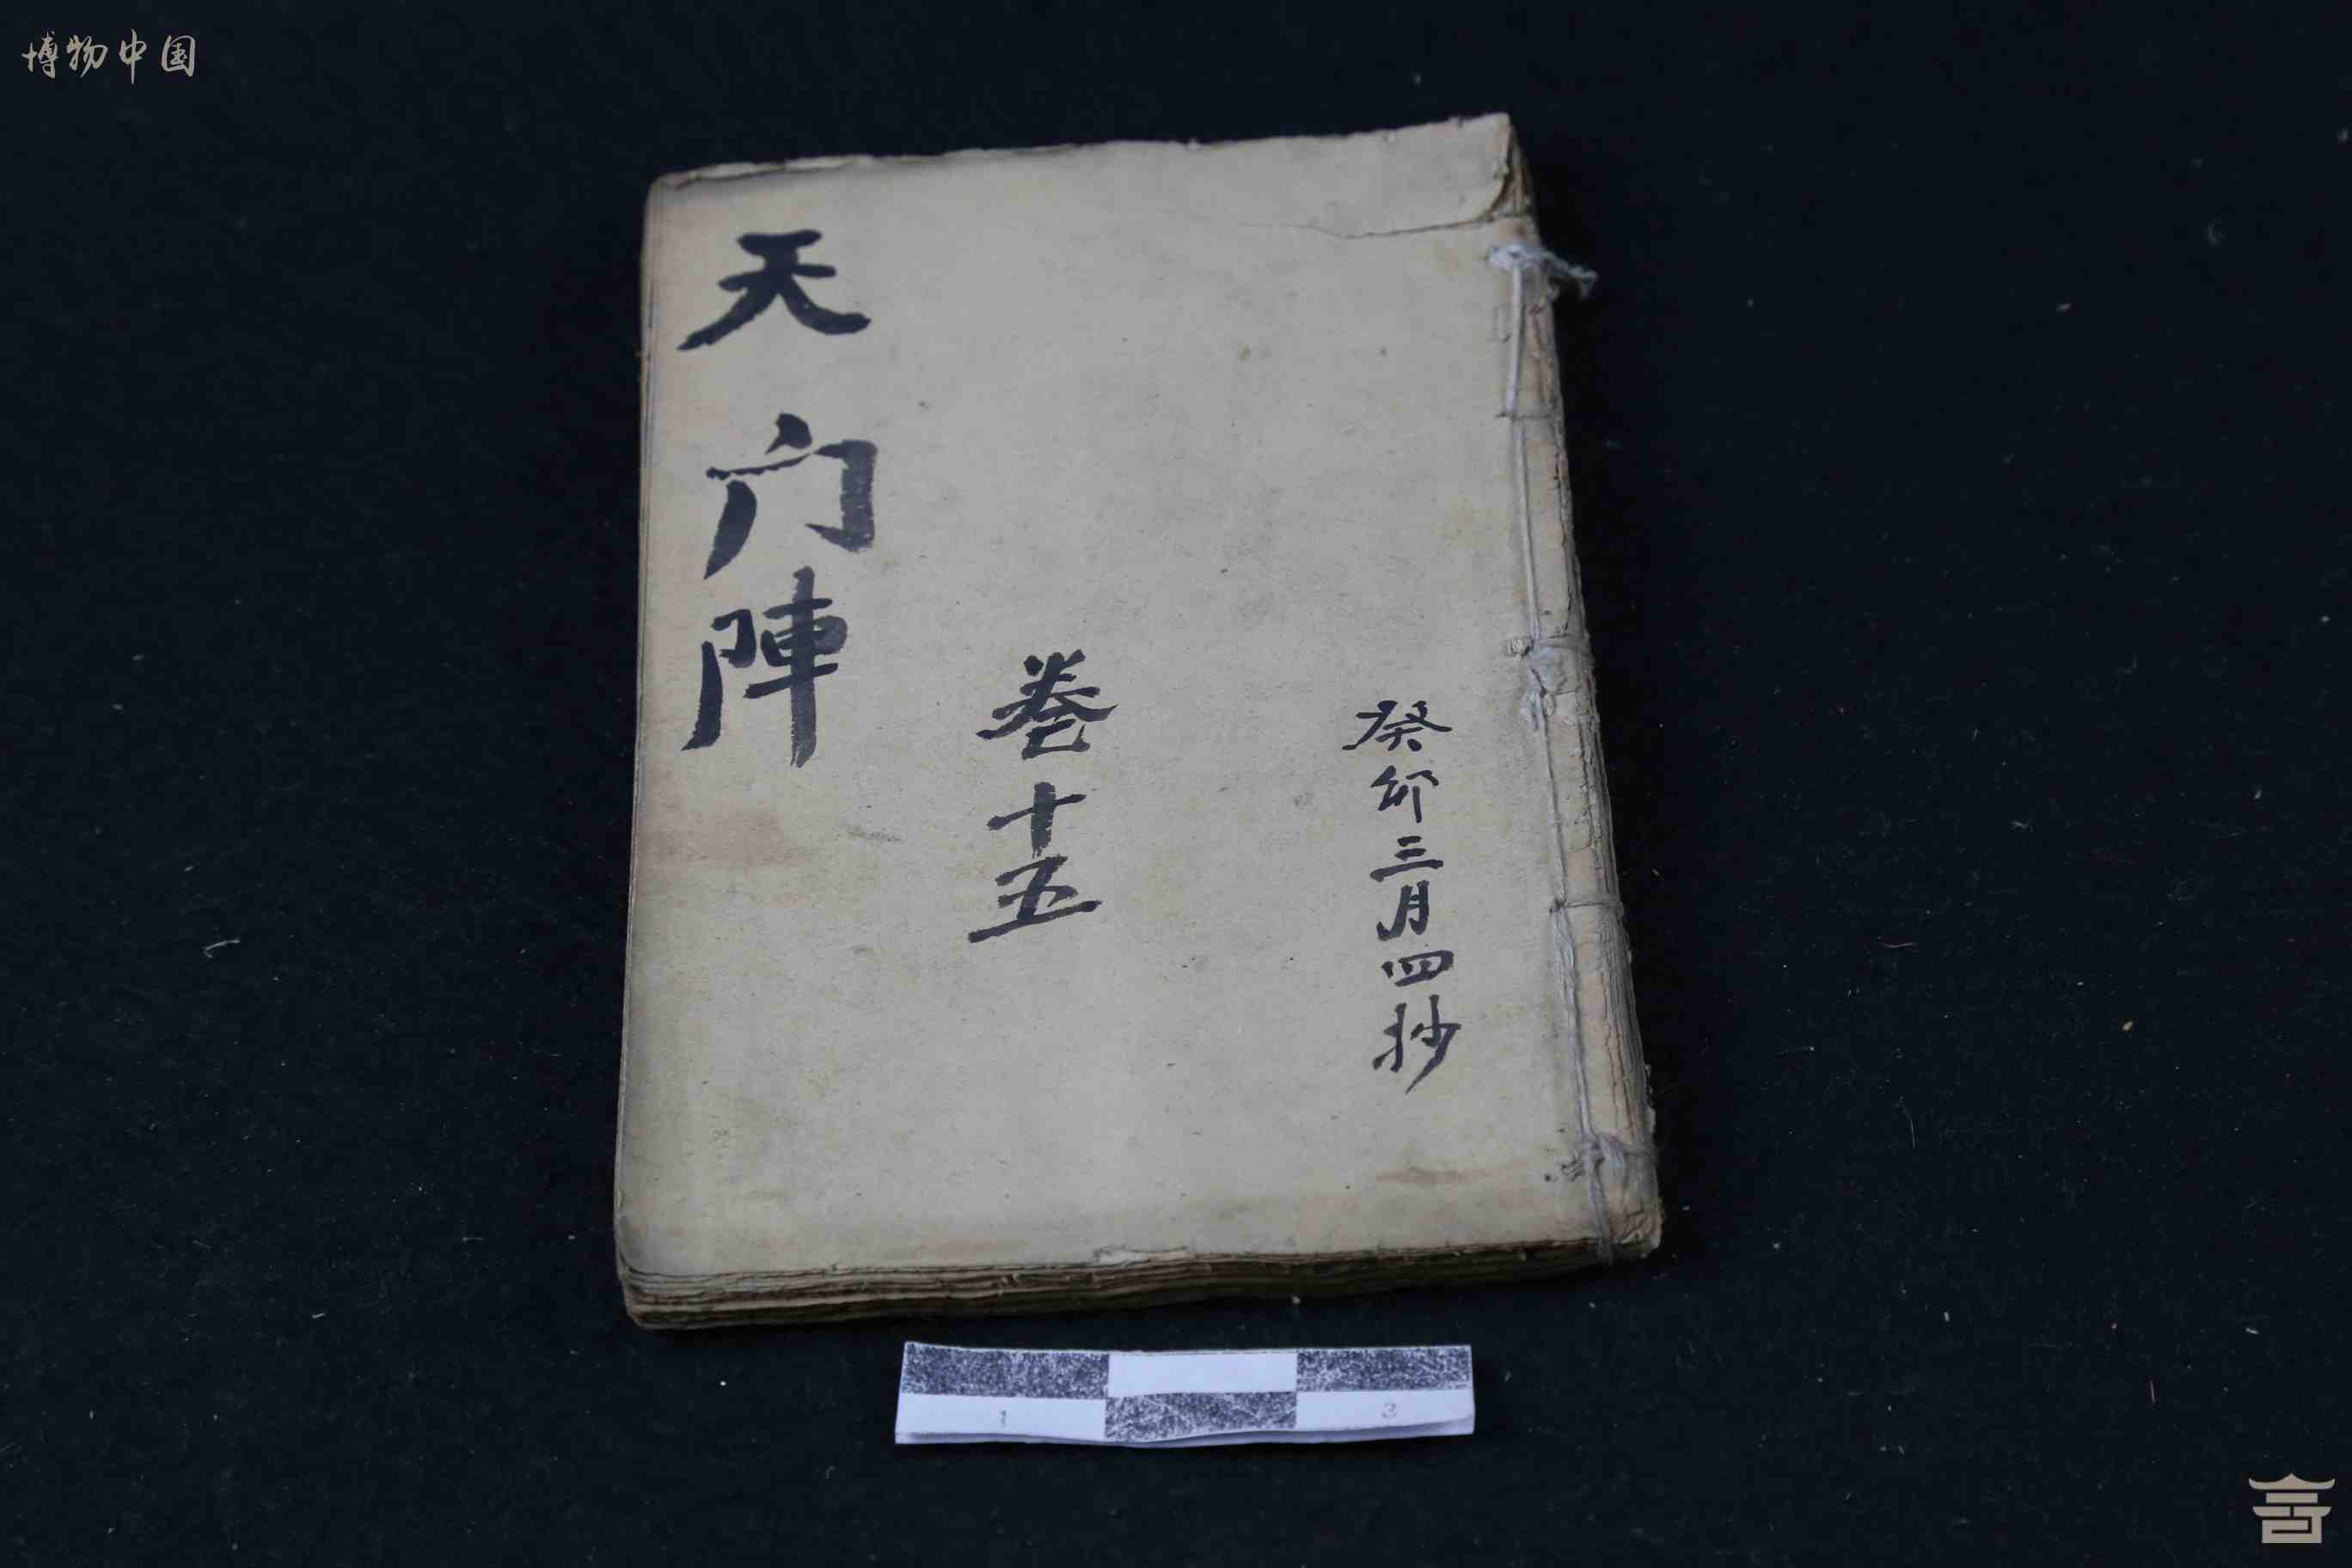 博物中国
癸卯三月四抄
卷十五
天门陣
1
3